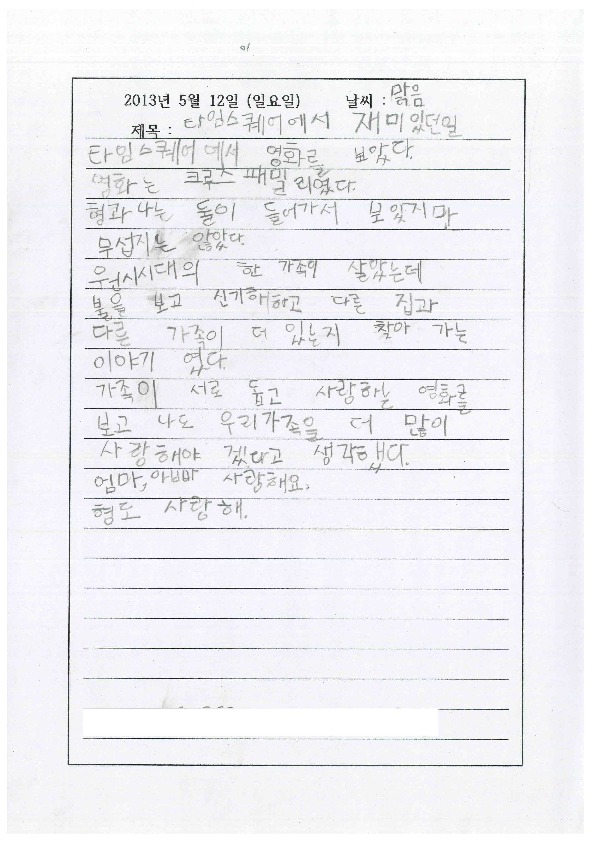 01
2013년 5월 12일 (일요일) 날씨 : 맑음
제목 : 타임스퀘어에서 재미있던일
타임스퀘어에서 영화를 보았다.
영화는 크루즈 패밀리였다.
형과 나는 둘이 들어가서 보았지만
무섭지는 않았다.
우원시시대의 한 가족이 살았는데
불을 보고 신기해하고 다른 집과
다른 가족이 더 있는지 찾아 가는
이야기 였다.
가족이 서로 돕고 사랑하는 영화를
보고 나도 우리가족을 더 많이
사랑해야 겠다고 생각했다.
엄마, 아빠 사랑해요.
형도 사랑해.